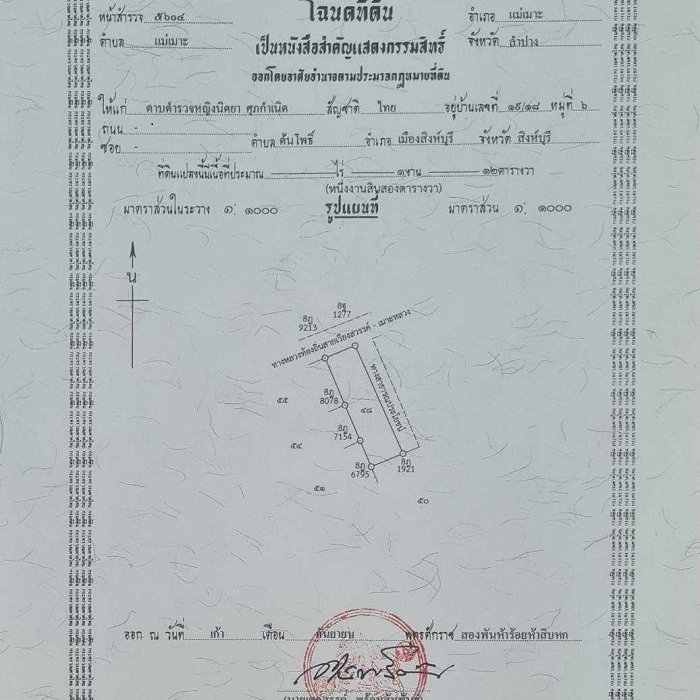 โฉนดที่ดิน
หน้าสำรวจ ๕๖๐๔ อำเภอ แม่เมาะ
ตำบล แม่เมาะ เป็นหนังสือสำคัญแสดงกรรมสิทธิ์ จังหวัด ลำปาง
ออกโดยอาศัยอำนาจตามประมวลกฎหมายที่ดิน
ให้แก่ ดาบตำรวจหญิงนิตยา ศุภกำเนิด สัญชาติ ไทย อยู่บ้านเลขที่ ๑๙/๑๘ หมู่ที่ ๖
ถนน -
ซอย - ตำบล ต้นโพธิ์ อำเภอ เมืองสิงห์บุรี จังหวัด สิงห์บุรี
ที่ดินแปลงนี้มีเนื้อที่ประมาณ ไร่ ๑งาน ๑๒ตารางวา
(หนึ่งงานสิบสองตารางวา)
มาตราส่วนในระวาง ๑: ๑๐๐๐ รูปแผนที่ มาตราส่วน ๑: ๑๐๐๐
น
8ฐ
1277
8ฎ
9213
ทางหลวงท้องถิ่นสายเวียงสวรรค์ - เมาะหลวง
ทางสาธารณประโยชน์
๕๕
8ฎ
8078
๔๘
8ฎ
7154
๕๔
8ฎ
6795
8ฎ
1921
๕๑
๕๐
ออก ณ วันที่ เก้า เดือน กันยายน พุทธศักราช สองพันห้าร้อยห้าสิบหก